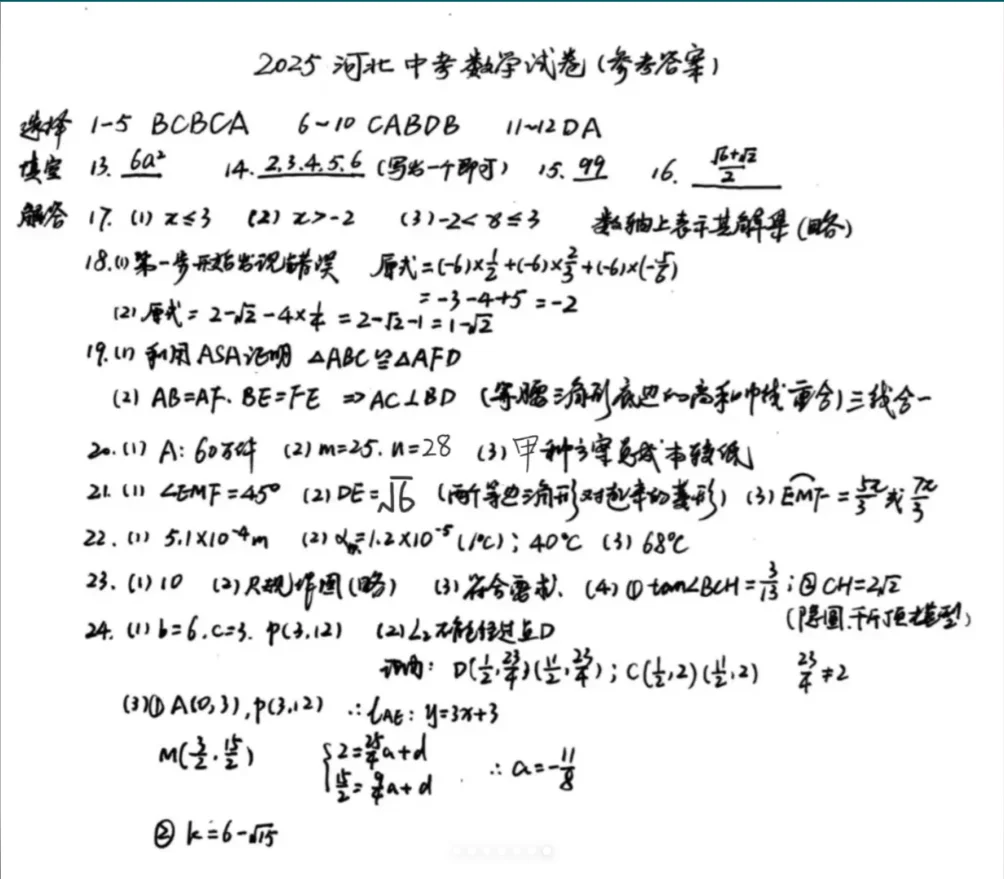 2025河北中考数学试卷(参考答案)
选择 1-5 BCBCA 6~10 CABDB 11~12 DA
填空 13. 6a² 14. 2,3,4,5,6 (写出一个即可) 15. 99 16. (√6+√2)/2
解答 17. (1) x≤3 (2) x>-2 (3) -2<x≤3 数轴上表示其解集(略)
18.(1)第一步开始出现错误 原式=(-6)×1/2+(-6)×2/3+(-6)×(-5/6)
=-3-4+5=-2
(2)原式=2-√2-4×1/4=2-√2-1=1-√2
19.(1) 利用ASA证明 △ABC≌△AFD
(2) AB=AF. BE=FE ⇒AC⊥BD (等腰三角形底边的高和中线重合)三线合一
20.(1) A: 60万件 (2) m=25. n=28 (3) 甲种方案总成本较低
21.(1) ∠EMF=45° (2) DE=√6 (两个等边三角形对起来的菱形) (3) EMF=5π/3或7π/3
22.(1) 5.1×10⁻⁴m (2) α=1.2×10⁻⁵(1/℃); 40℃ (3) 68℃
23.(1) 10 (2)尺规作图(略) (3)符合要求. (4)①tan∠BCH=3/13;②CH=2√2
(隐圆.千斤顶模型)
24.(1) b=6.c=3. P(3,12) (2)L₂不能经过点D
D(1/2,23/4)(11/2,23/4);C(1/2,2)(11/2,2) 23/4≠2
(3)① A(0,3),P(3,12) ∴lAE: y=3x+3
M(3/2,15/2) {2=25/4a+d ∴a=-11/8
15/2=9/4a+d
② k=6-√15